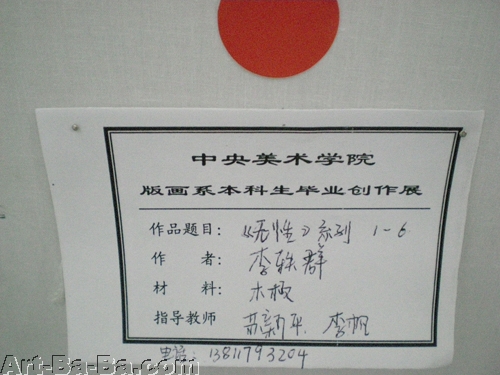 中央美术学院
版画系本科生毕业创作展
作品题目：《无性》系列 1-6
作者：李轶群
材料：木板
指导教师 苏新平 李帆
电话：13811793204
Art-Ba-Ba.com